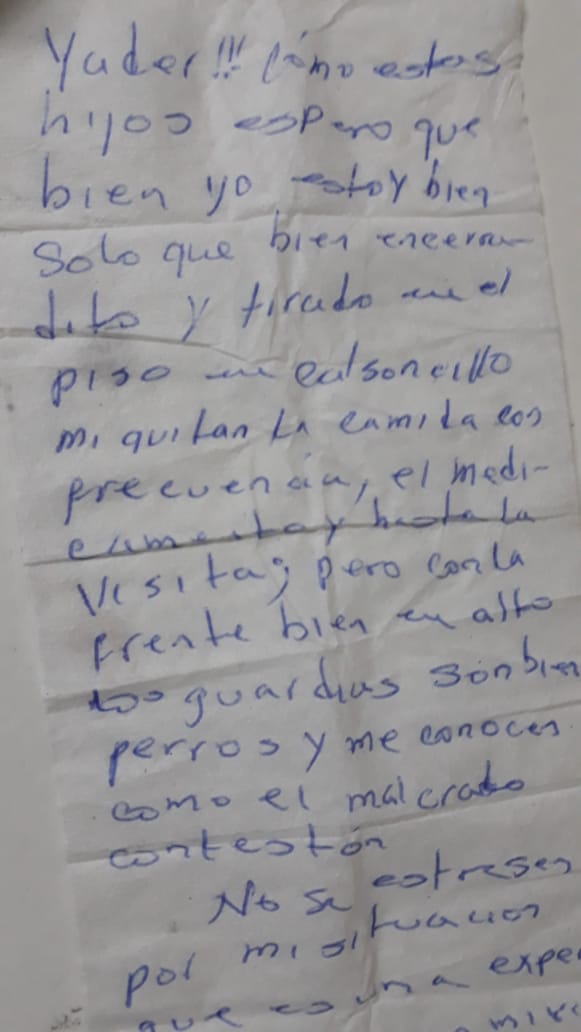 Yader!!! Cómo estas
hijos espero que
bien yo estoy bien
Solo que bien encerra-
dito y tirado en el
piso en calsoncillo
mi quitan la camida con
frecuencia, el medi-
camento y hasta la
Visita; pero con la
frente bien en alto
los guardias son bien
perros y me conocen
como el malcrado
contestón
No se estresen
por mi situacion
que es una expe